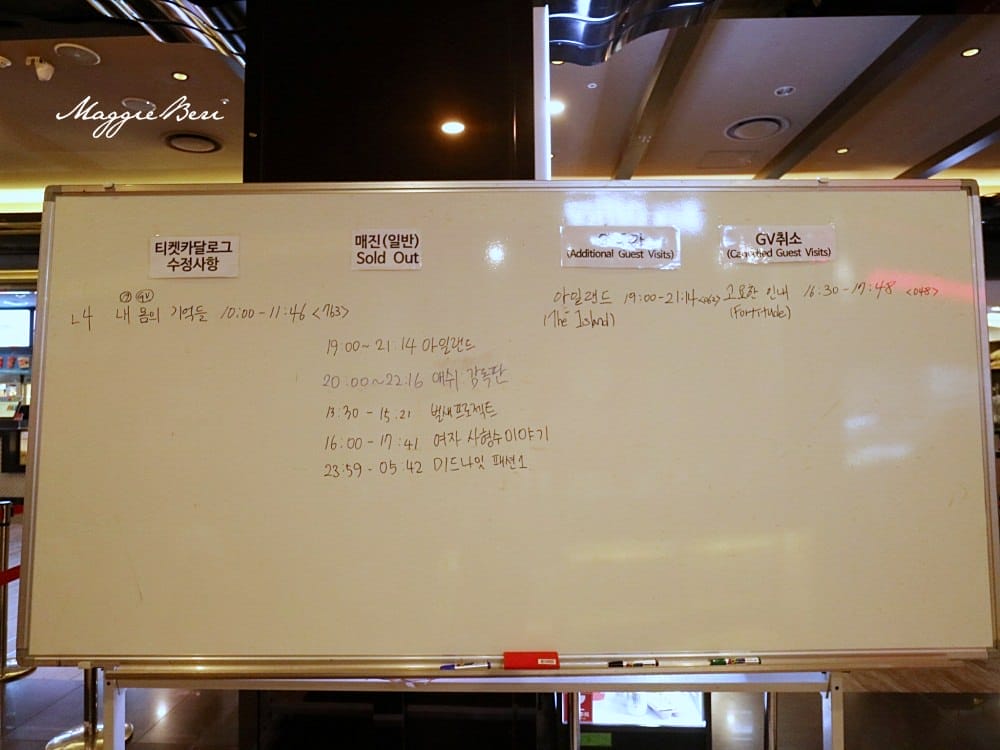 MaggieBeri
티켓카달로그
수정사항
매진(일반)
Sold Out
(Additional Guest Visits)
GV취소
(Cancelled Guest Visits)
GV
L4 내 몸의 기억들 10:00-11:46 <763>
19:00~21:14 아일랜드
20:00~22:16 애쉬 감독판
13:30-15.21 벌새프로젝트
16:00-17:41 여자 사형수 이야기
23:59-05:42 미드나잇 패션1
아일랜드 19:00-21:14
(The Island)
고요한 인내 16:30-17:48 <048>
(Fortitude)